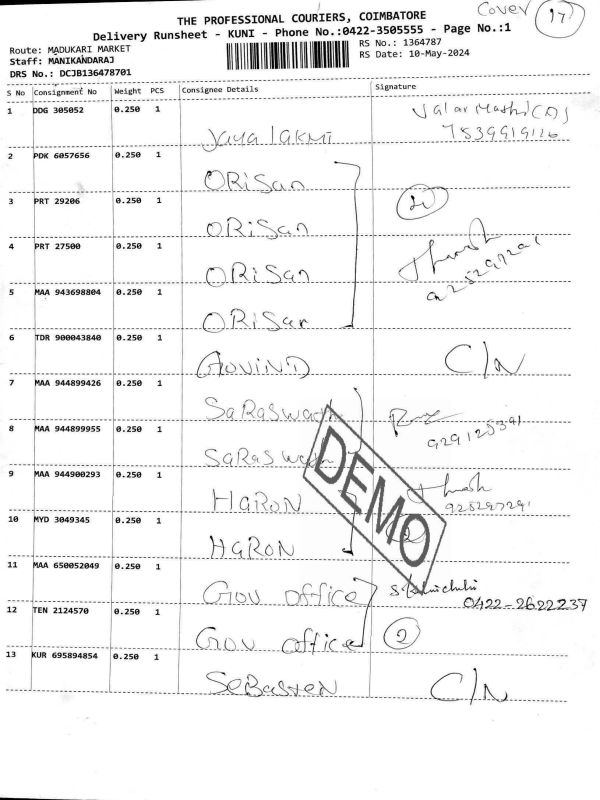 Cover 17
THE PROFESSIONAL COURIERS, COIMBATORE
Delivery Runsheet - KUNI - Phone No.:0422-3505555 - Page No.:1
Route: MADUKARI MARKET
Staff: MANIKANDARAJ
DRS No.: DCJB136478701
RS No.: 1364787
RS Date: 10-May-2024
S No Consignment No Weight PCS Consignee Details Signature
1 DDG 305052 0.250 1
Jaya lakmi
2 PDK 6057656 0.250 1
ORiSan
3 PRT 29206 0.250 1
ORiSan
4 PRT 27500 0.250 1
ORiSan
5 MAA 943698804 0.250 1
ORiSan
6 TDR 900043840 0.250 1
GOVIND C/N
7 MAA 944899426 0.250 1
SaRaSwath
8 MAA 944899955 0.250 1
SaRaSwath
9 MAA 944900293 0.250 1
HaRON
10 MYD 3049345 0.250 1
HaRON
11 MAA 650052049 0.250 1
Gov office 0422-2622237
12 TEN 2124570 0.250 1
Gov office 2
13 KUR 695894854 0.250 1
SeBasten C/N
DEMO